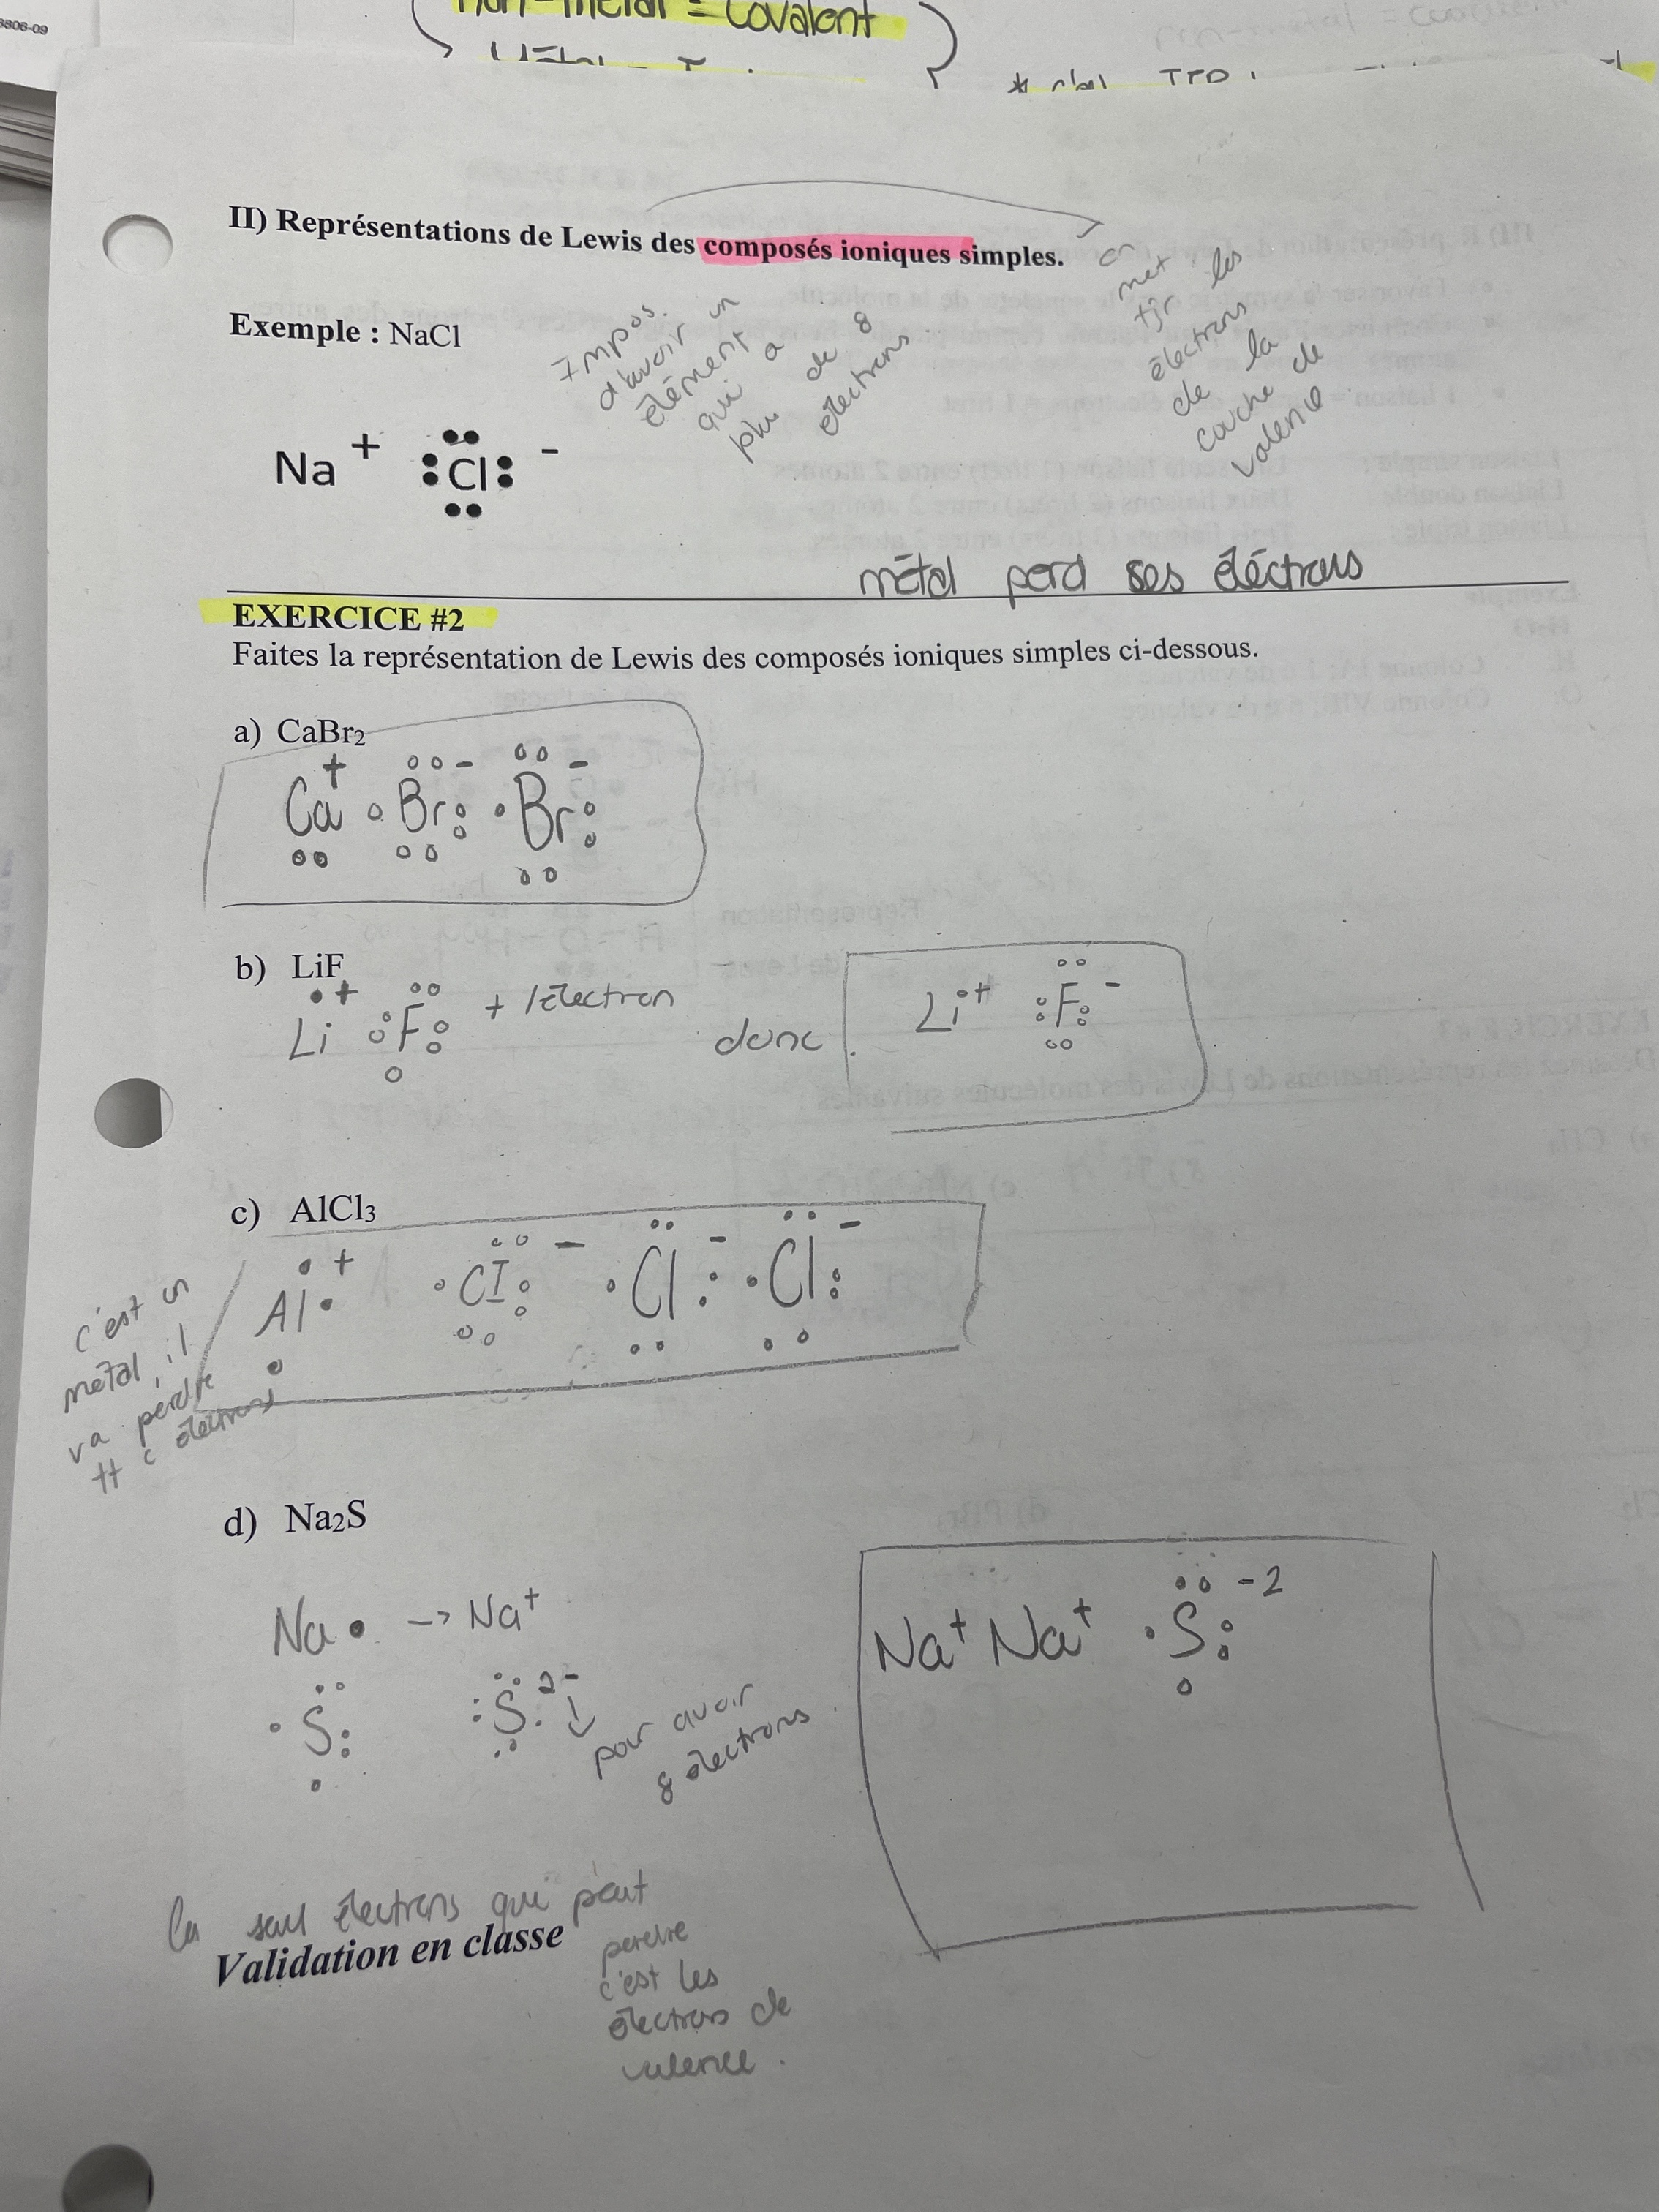 3806-09
non-métal = covalent
II) Représentations de Lewis des composés ioniques simples.
on
met
tjr les
électrons
de la
couche de
valence
Exemple : NaCl
Impos.
d'avoir un
élément
qui a
plus de 8
électrons
Na + Cl -
métal perd ses éléctrons
EXERCICE #2
Faites la représentation de Lewis des composés ioniques simples ci-dessous.
a) CaBr2
Ca + Br - Br -
b) LiF
Li + F + 1électron
donc
Li + F -
c) AlCl3
Al + Cl - Cl - Cl -
c'est un
métal, il
va perdre
tt c électrons
d) Na2S
Na → Na+
S S 2-
pour avoir
8 électrons
Na+ Na+ S -2
seul électrons qui peut
perdre
c'est les
électrons de
valence.
Validation en classe